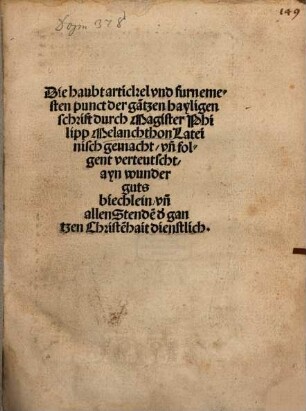 Dogm 378
149
Die haubt artickel vnd furneme-
sten punct der gãtzen hayligen
schrift durch Magister Phi
lipp Melanchthon Latei
nisch gemacht/ vñ fol-
gent verteutscht/
ayn wunder
guts
biechlein/ vñ
allen Stendẽ đ gan
tzen Christẽhait dienstlich.